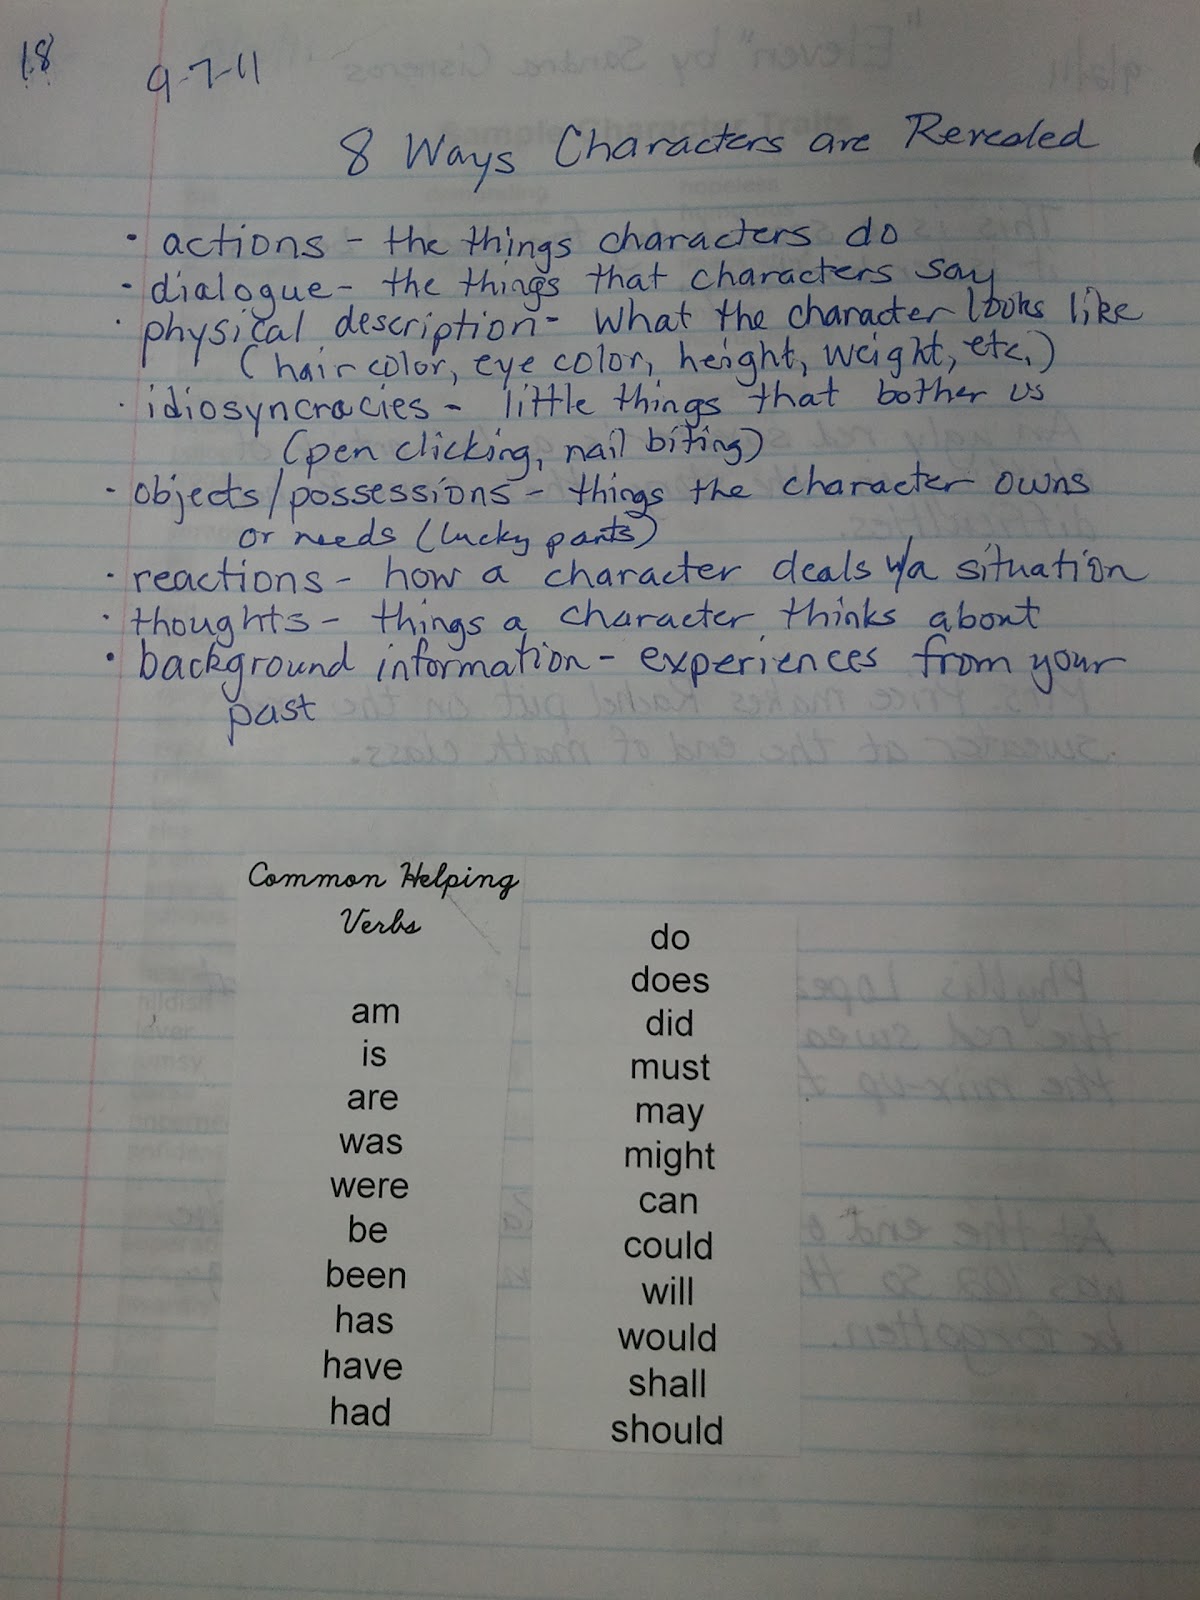 18
9-7-11
8 Ways Characters are Revealed
• actions - the things characters do
• dialogue - the things that characters say
• physical description - what the character looks like
(hair color, eye color, height, weight, etc.)
• idiosyncracies - little things that bother us
(pen clicking, nail biting)
• objects/possessions - things the character owns
or needs (lucky pants)
• reactions - how a character deals w/a situation
• thoughts - things a character thinks about
• background information - experiences from your
past
Common Helping
Verbs
am
is
are
was
were
be
been
has
have
had
do
does
did
must
may
might
can
could
will
would
shall
should